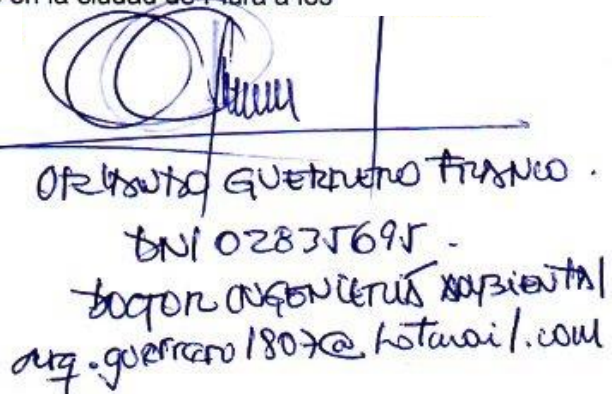 en la ciudad de Piura a los
ORLANDO GUERRERO FRANCO.
DNI 02835695.
DOCTOR INGENIERIA AMBIENTAL
arq.guerrero1807@hotmail.com